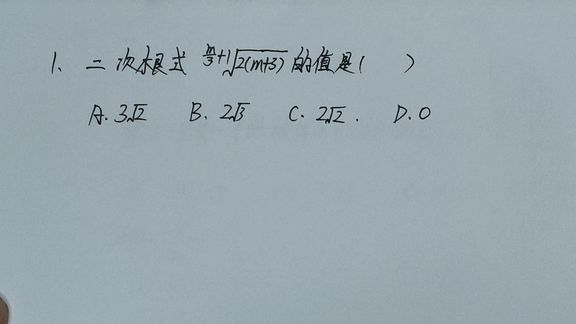 1、二次根式 $\sqrt[\frac{m}{3}+1]{2(m+3)}$ 的值是( )
A. $3\sqrt{2}$ B. $2\sqrt{3}$ C. $2\sqrt{2}$. D. 0